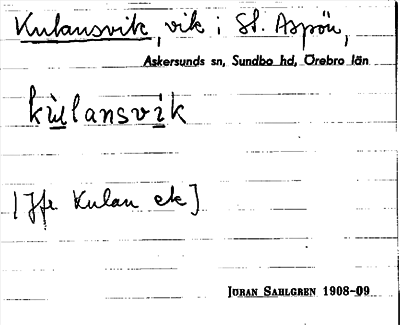 Kulansvik, vik i St. Aspön,
Askersunds sn, Sundbo hd, Örebro län
kùlansvik
[Jfr Kulan ek]
Jöran Sahlgren 1908-09